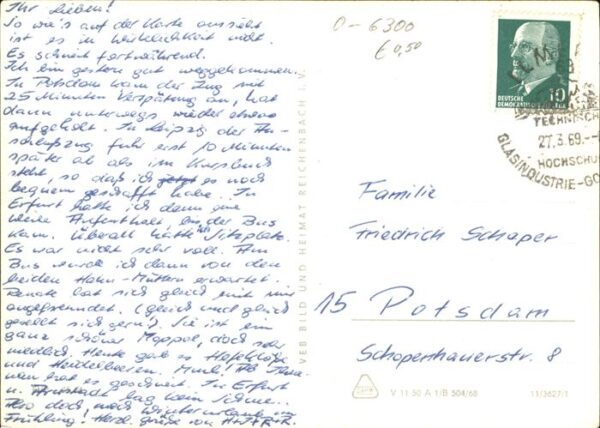 Ihr Lieben!
So wie's auf der Karte aussieht
ist es in Wirklichkeit nicht.
Es schneit fortwährend.
Ich bin gestern gut weggekommen.
In Potsdam kam der Zug mit
25 Minuten Verspätung an, hat
dann unterwegs wieder etwas
aufgeholt. In Leipzig der An-
schlußzug fuhr erst 10 Minuten
später ab als im Kursbuch
steht, so daß ich jetzt es noch
bequem geschafft habe. In
Erfurt hatte ich dann eine
Weile Aufenthalt, bis der Bus
kam. Überall hatte ich Sitzplatz.
Es war nicht sehr voll. Am
Bus wurde ich dann von den
beiden Hahn-Müttern erwartet.
Renate hat sich gleich mit mir
angefreundet. (gleich und gleich
gesellt sich gern!) Sie ist ein
ganz schöner Moppel, doch sehr
niedlich. Heute gab es Hefeklöße
und Heidelbeeren. Mmh! Ab
hat es geschneit. In Erfurt
u. Arnstadt lag kein Schnee.
Also doch noch Winterurlaub im
Frühling! Herzl. Grüße von
VEB BILD UND HEIMAT REICHENBACH I. V.
0-6300
€ 0,50
10
DEUTSCHE
DEMOKRATISCHE REPUBLIK
ILMENAU
TECHNISCHE
27.3.69.--
HOCHSCHU
GLASINDUSTRIE-GO
Familie
Friedrich Schaper
15 Potsdam
Schopenhauerstr. 8
V 11 50 A 1/B 504/68
11/3627/1